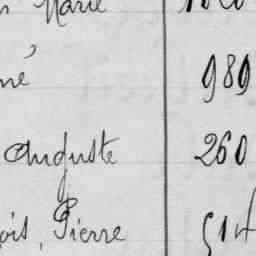 Marie
né 989
Auguste 260
ois, Pierre 514